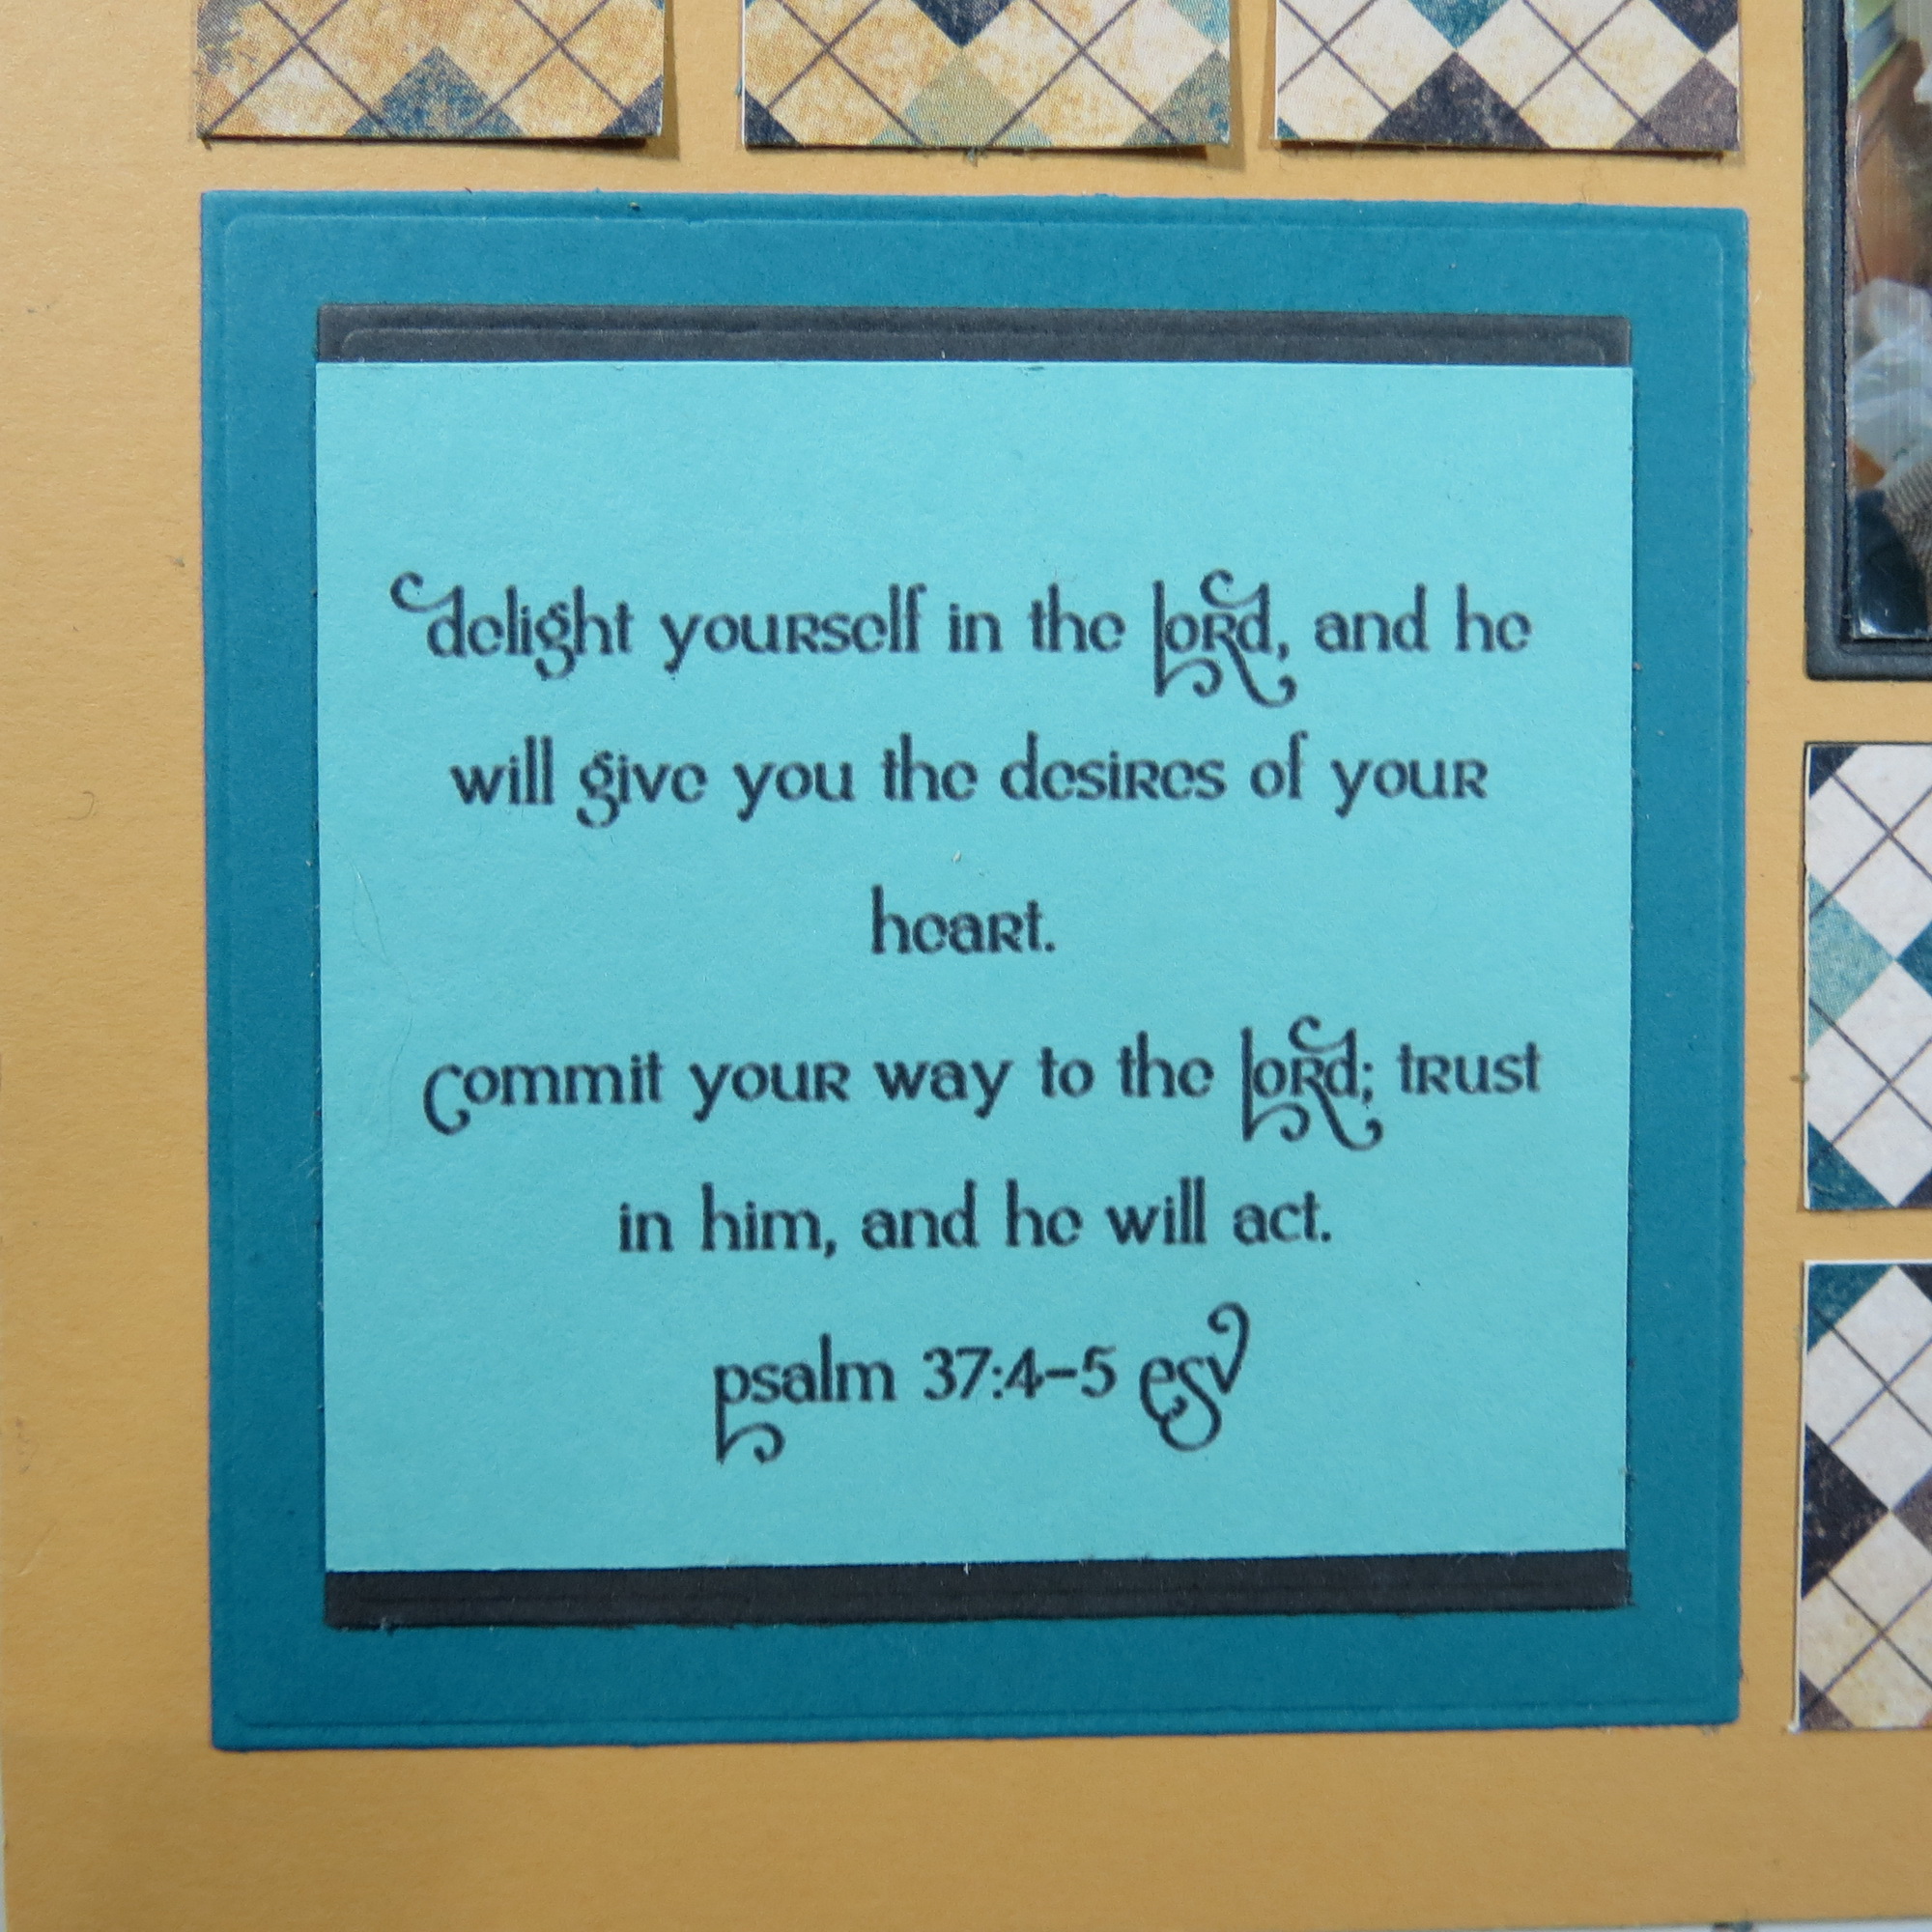 delight yourself in the lord, and he
will give you the desires of your
heart.
commit your way to the lord; trust
in him, and he will act.
psalm 37:4-5 esv